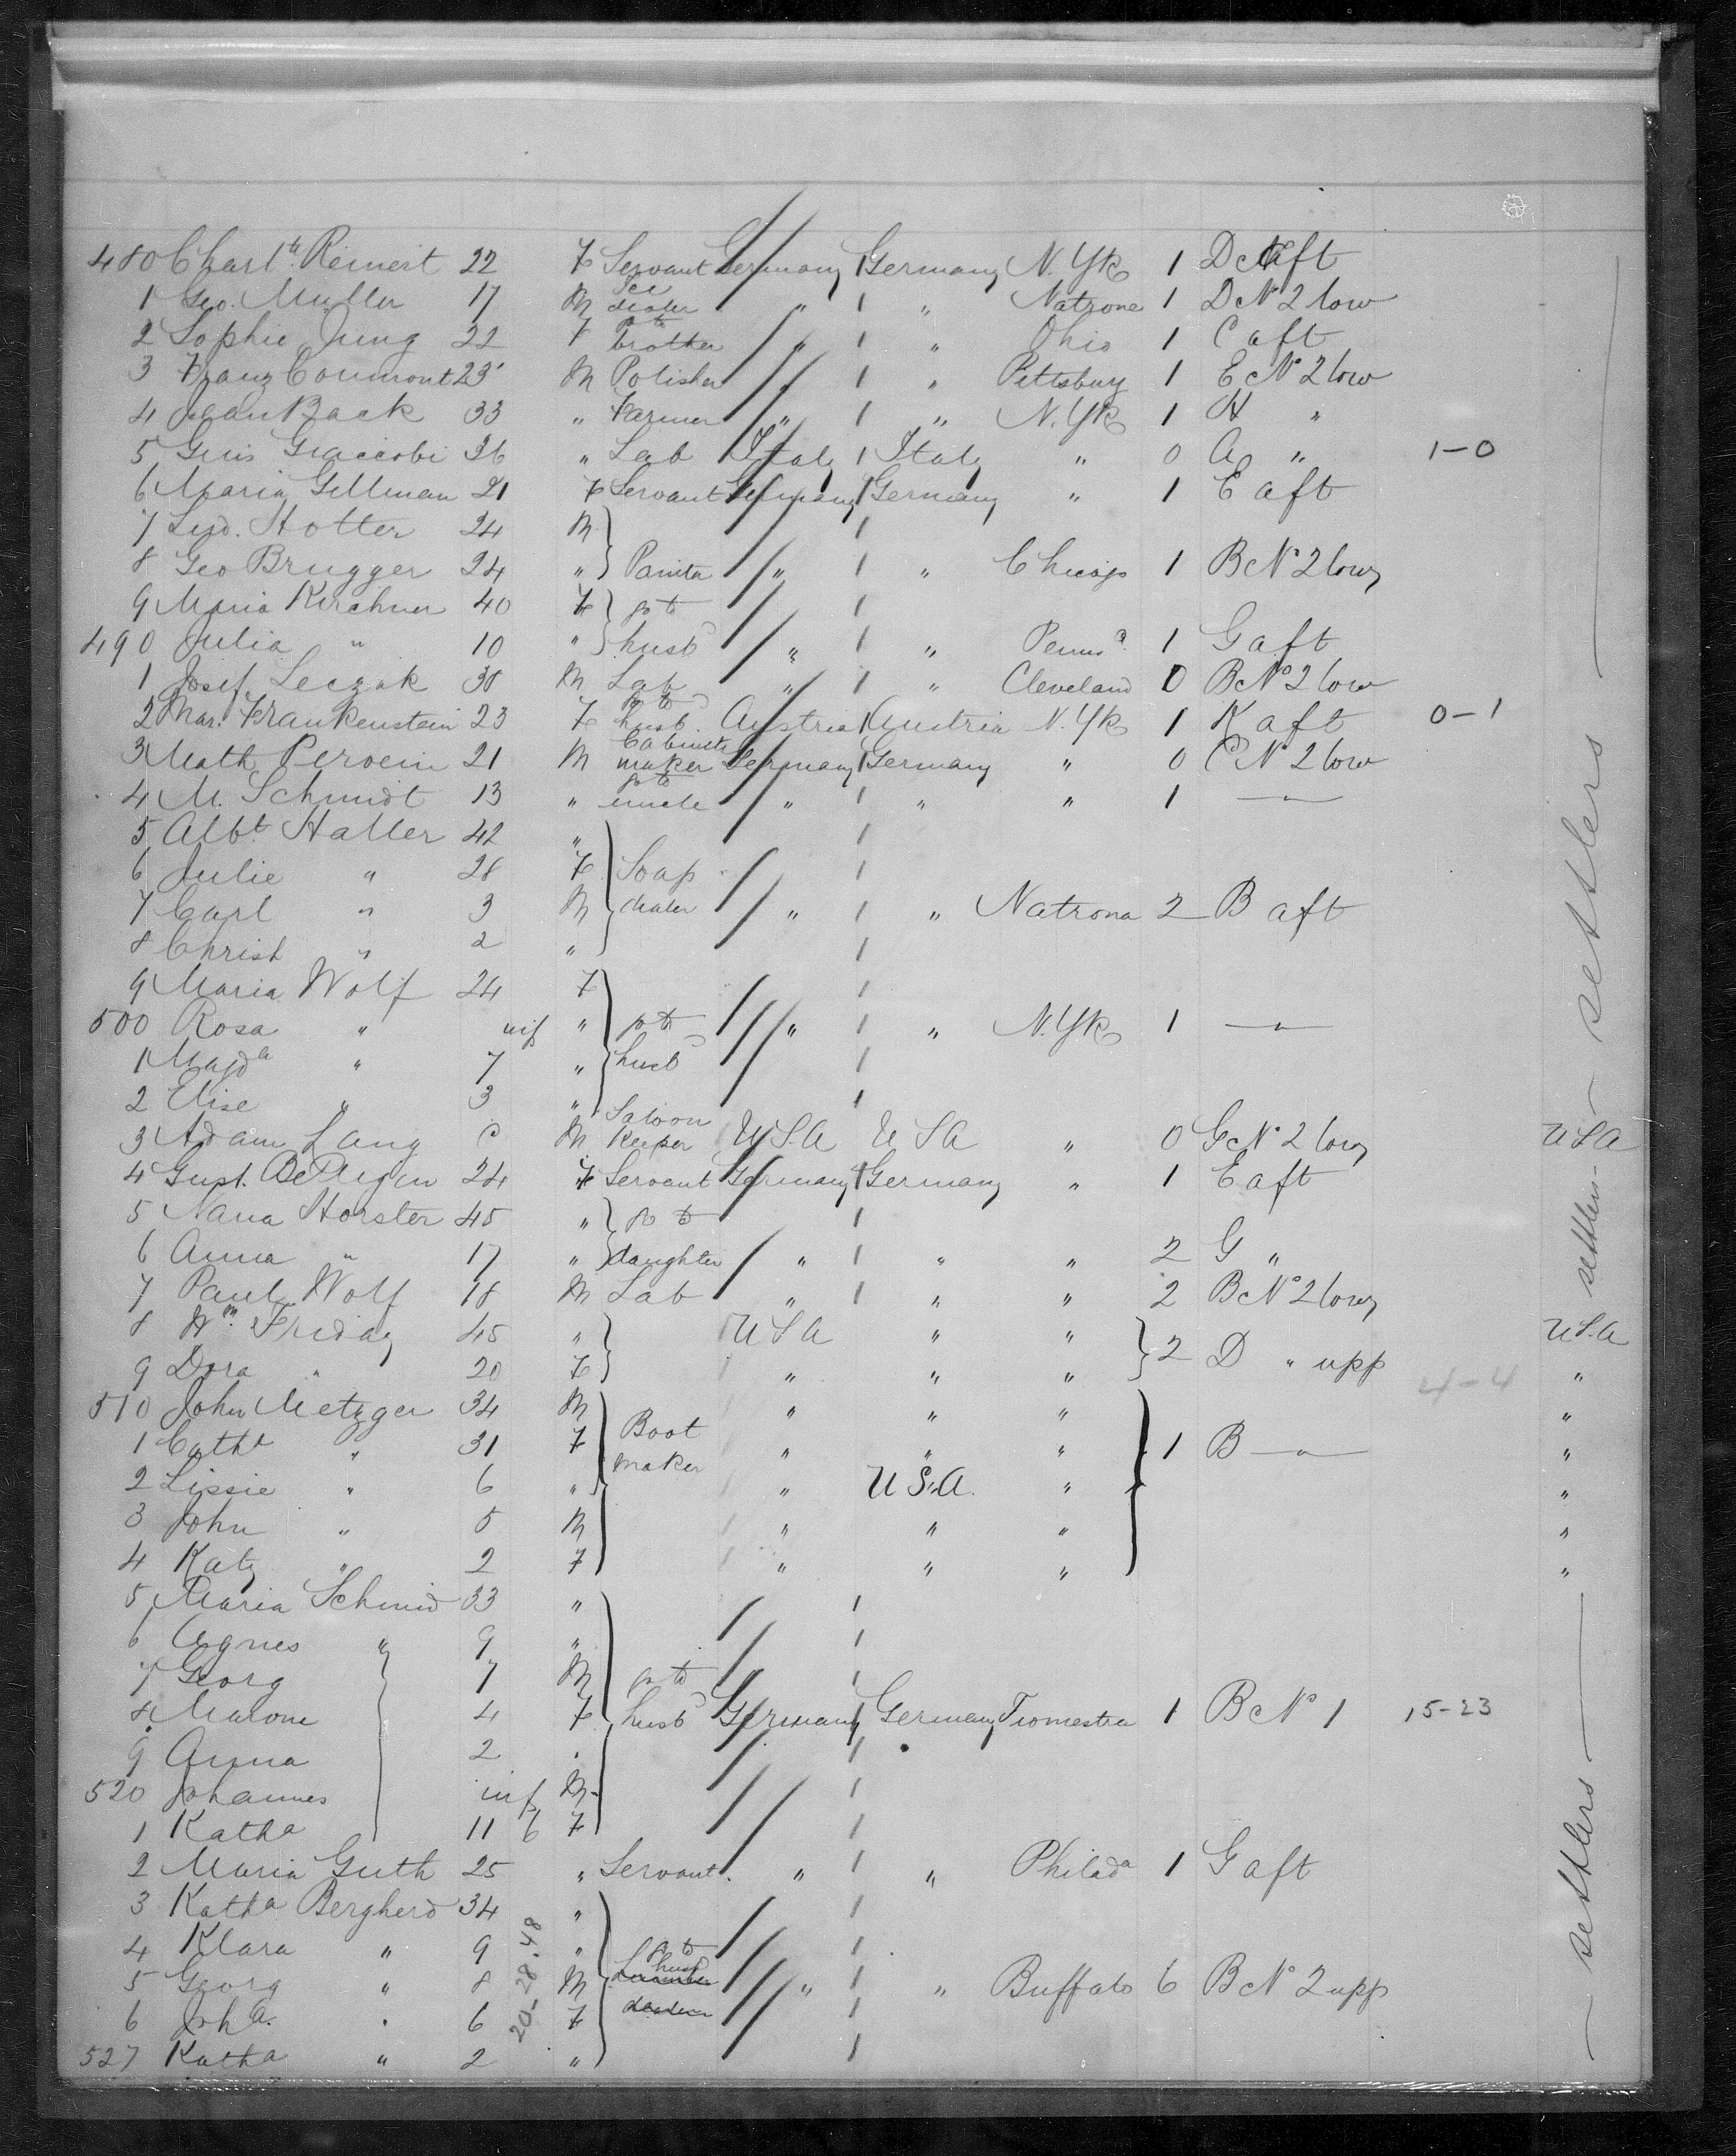 480 Charl^te Reinert 22 F Servant Germany 1 Germany N.Yk 1 D C aft
1 Geo. Muller 17 M dealer " 1 " Natrone 1 D N° 2 low
2 Sophie Jung 22 F g to brother " 1 " Ohio 1 C aft
3 Franz Courmont 23 M Polisher " 1 " Pittsburg 1 E c N° 2 low
4 Jean Back 33 " Farmer " 1 " N.Yk 1 H "
5 Gius Giaccobi 36 " Lab Italy 1 Italy " 0 A " 1-0
6 Maria Gillman 21 F Servant Germany 1 Germany " 1 E aft
7 Hotter 24 M 1
8 Geo Brugger 24 " " 1 " Chicago 1 B c N° 2 low
9 Maria Kirchner 40 F g to 1
490 Julia " 10 " husb " 1 " Penns^a 1 G aft
1 Josef Leczak 38 M Lab " 1 " Cleveland 0 B c N° 2 low
2 Mar. Frankenstein 23 F g to husb Austria 1 Austria N.Yk 1 K aft 0-1
3 Math Pervein 21 M Cabinet maker Germany 1 Germany " 0 C N° 2 low
4 M. Schmidt 13 " g to uncle " 1 " " 1 — " —
5 Alb^t Haller 42 " 1
6 Julie " 28 F Soap
7 Carl " 3 M dealer " 1 " Natrona 2 B aft
8 Christ " 2 " 1
9 Maria Wolf 24 F 1
500 Rosa " inf " g to " 1 " N.Yk 1 — " —
1 Magd^a " 7 " husb 1
2 Elise " 3 " 1
3 Adam Lang M Saloon Keeper U.S.A U S A " 0 G c N° 2 low U S A
4 Gust. 24 F Servant Germany 1 Germany " 1 E aft
5 Nana Horster 45 " g to 1
6 Anna " 17 " daughter " 1 " " 2 G "
7 Paul Wolf 18 M Lab " 1 " " 2 B c N° 2 low
8 W^m Friday 45 " U S A " " 2 D " upp U.S.A
9 Dora " 20 F " " " "
4-4
510 John Metzger 34 M " " " "
1 Cath^a " 31 F Boot maker " " " 1 B — " — "
2 Lissie " 6 " " U.S.A. " "
3 John " 5 M " " " "
4 Katy " 2 F " " " "
5 Maria Schmid 33 " 1
6 Agnes " 9 " 1
7 Georg 7 M g to 1
8 4 F husb Germany 1 Germany Tionesta 1 B c N° 1 15-23
9 Anna 2 " 1
520 Johannes inf M 1
1 Kath^a 11 6 F 1
2 Maria Guth 25 " Servant " 1 " Philad^a 1 G aft
3 Kath^a Bergherd 34 " 1
4 Klara " 9 " g to husb 1
5 Georg " 8 M " 1 " Buffalo 6 B c N° 2 upp
6 Joh^a " 6 F 1
527 Kath^a " 2 " 1
20-28.48
— settlers —
settlers
— settlers —